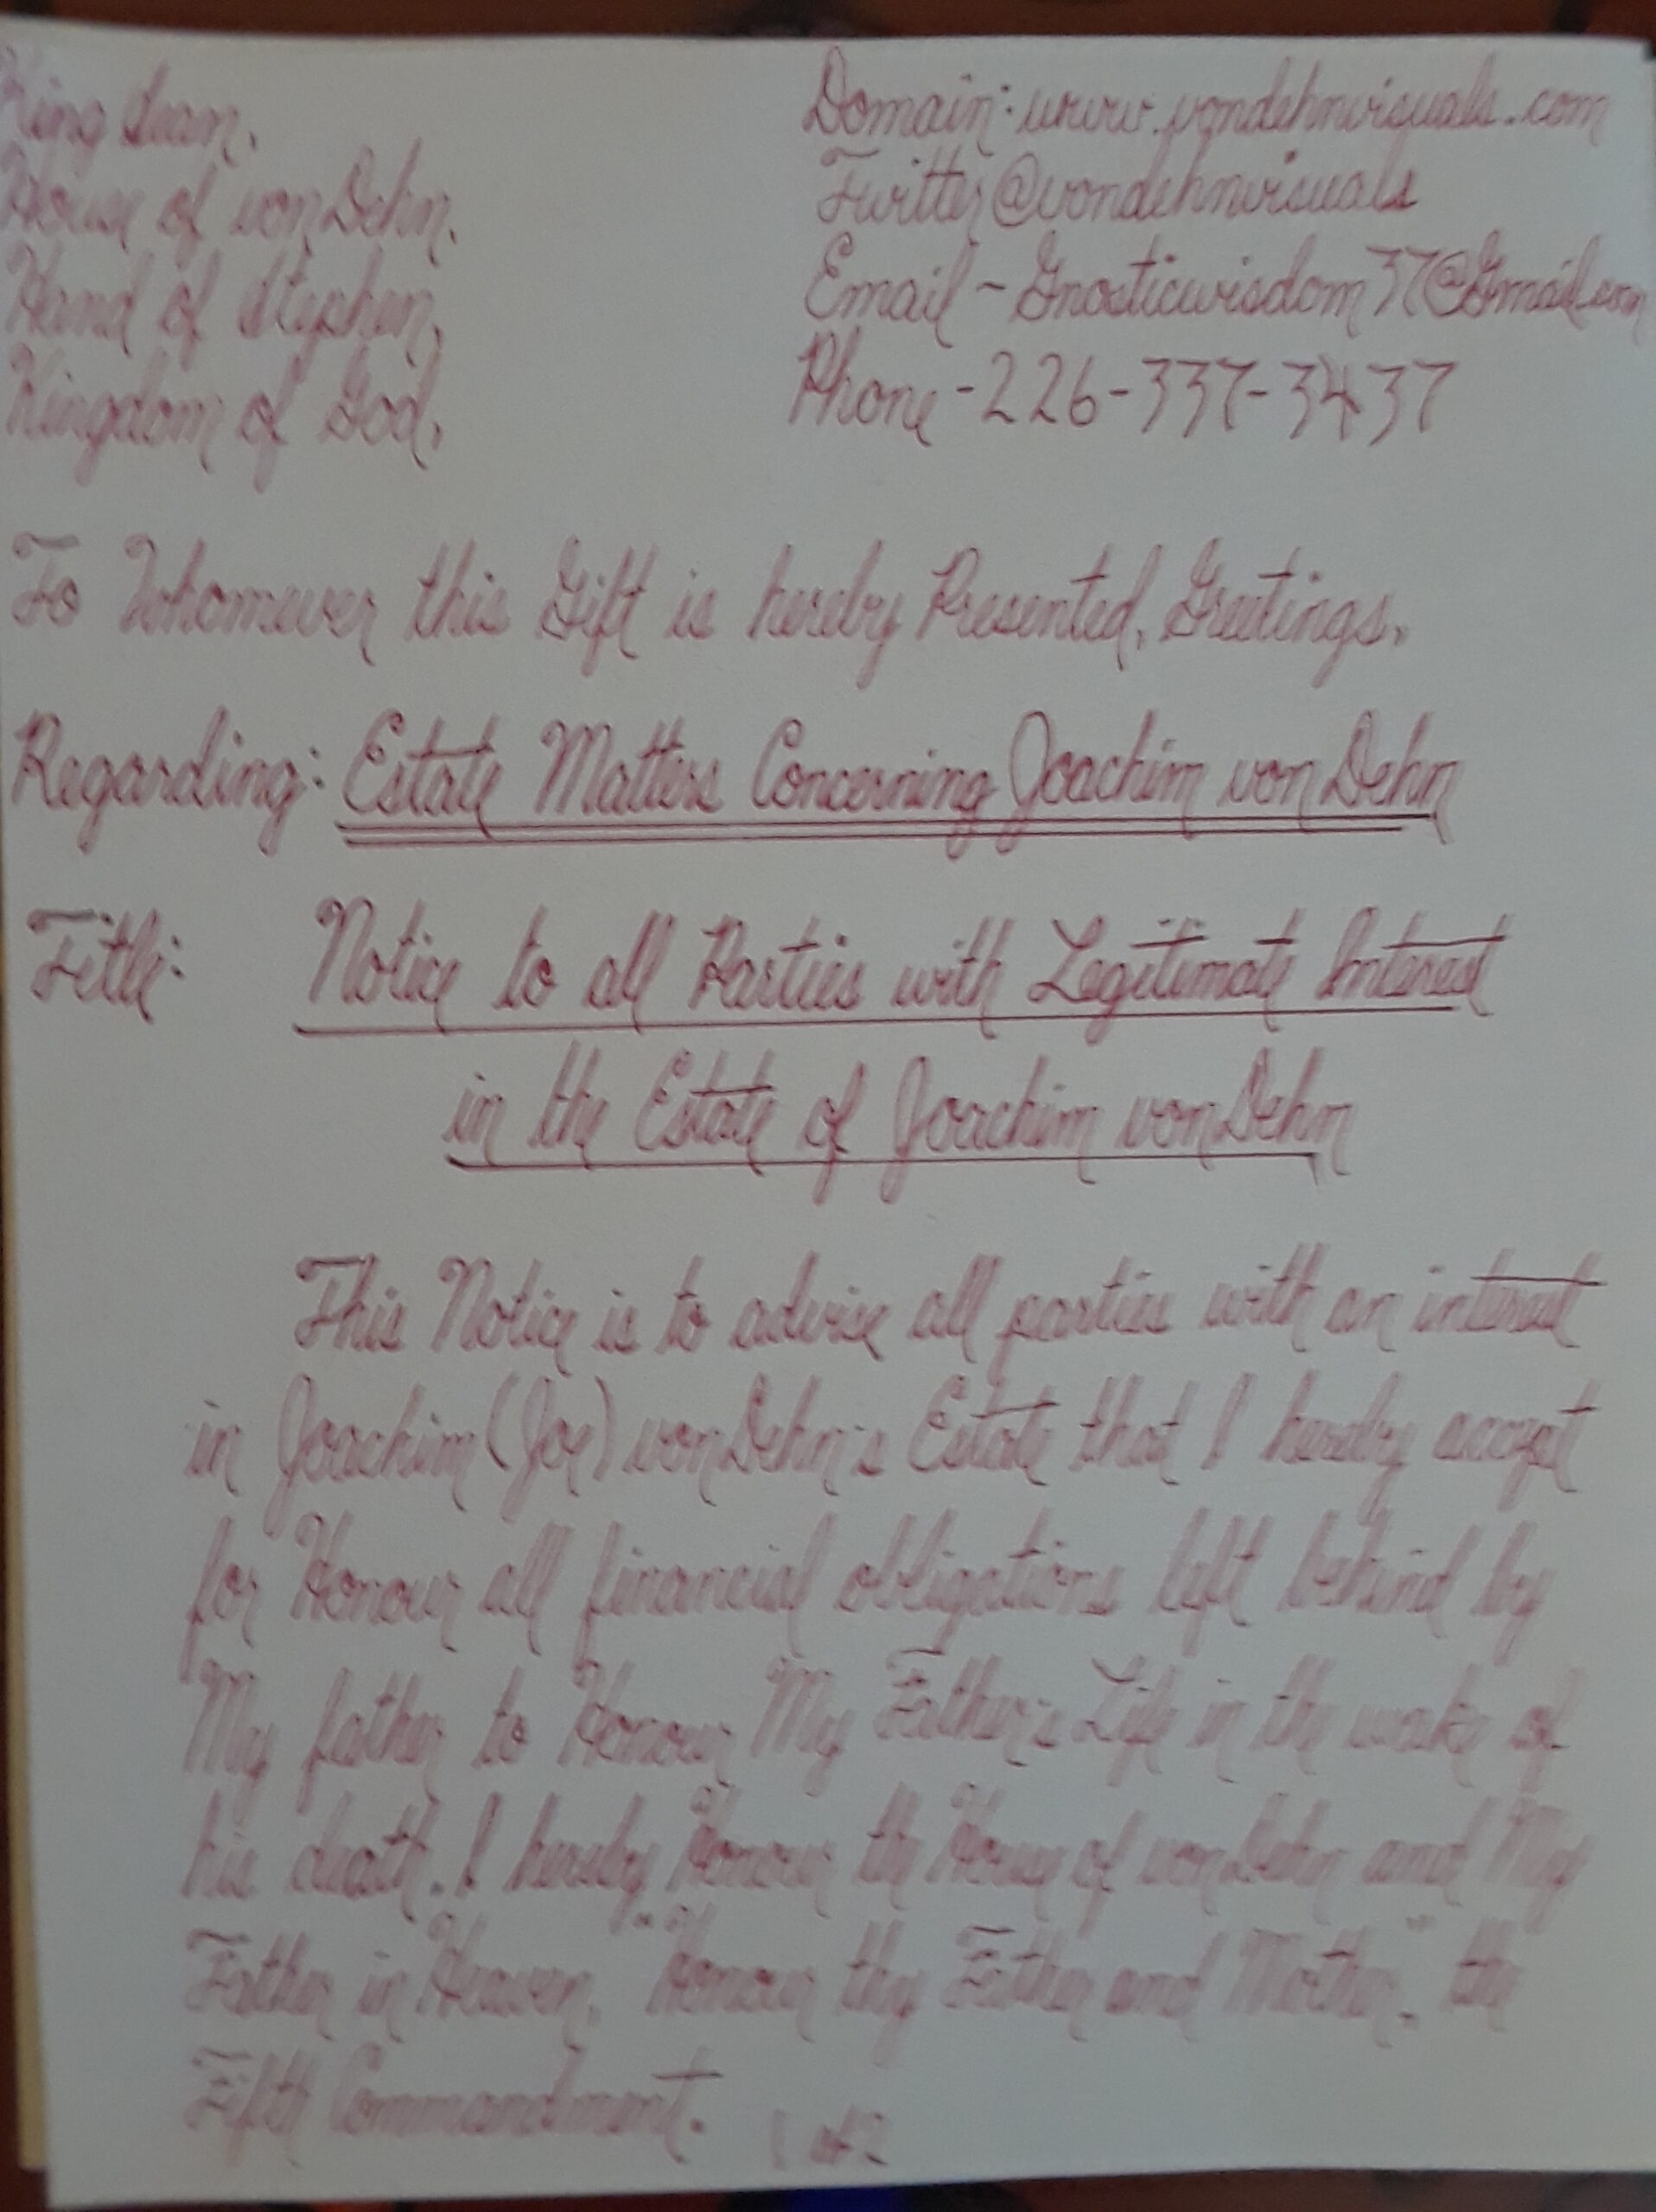 King Sean,
House of von Dehn,
Hand of Stephen,
Kingdom of God,
Domain: www.vondehnvisuals.com
Twitter@vondehnvisuals
Email - Gnosticwisdom37@Gmail.com
Phone - 226-337-3437
To Whomever this Gift is hereby Presented, Greetings,
Regarding: Estate Matters Concerning Joachim von Dehn
Title: Notice to all Parties with Legitimate Interest
in the Estate of Joachim von Dehn
This Notice is to advise all parties with an interest
in Joachim (Joe) von Dehn's Estate that I hereby accept
for Honour all financial obligations left behind by
My father to Honour My Father's Life in the wake of
his death. I hereby Honour the House of von Dehn and My
Father in Heaven. "Honour thy Father and Mother", the
Fifth Commandment.
1 of 2